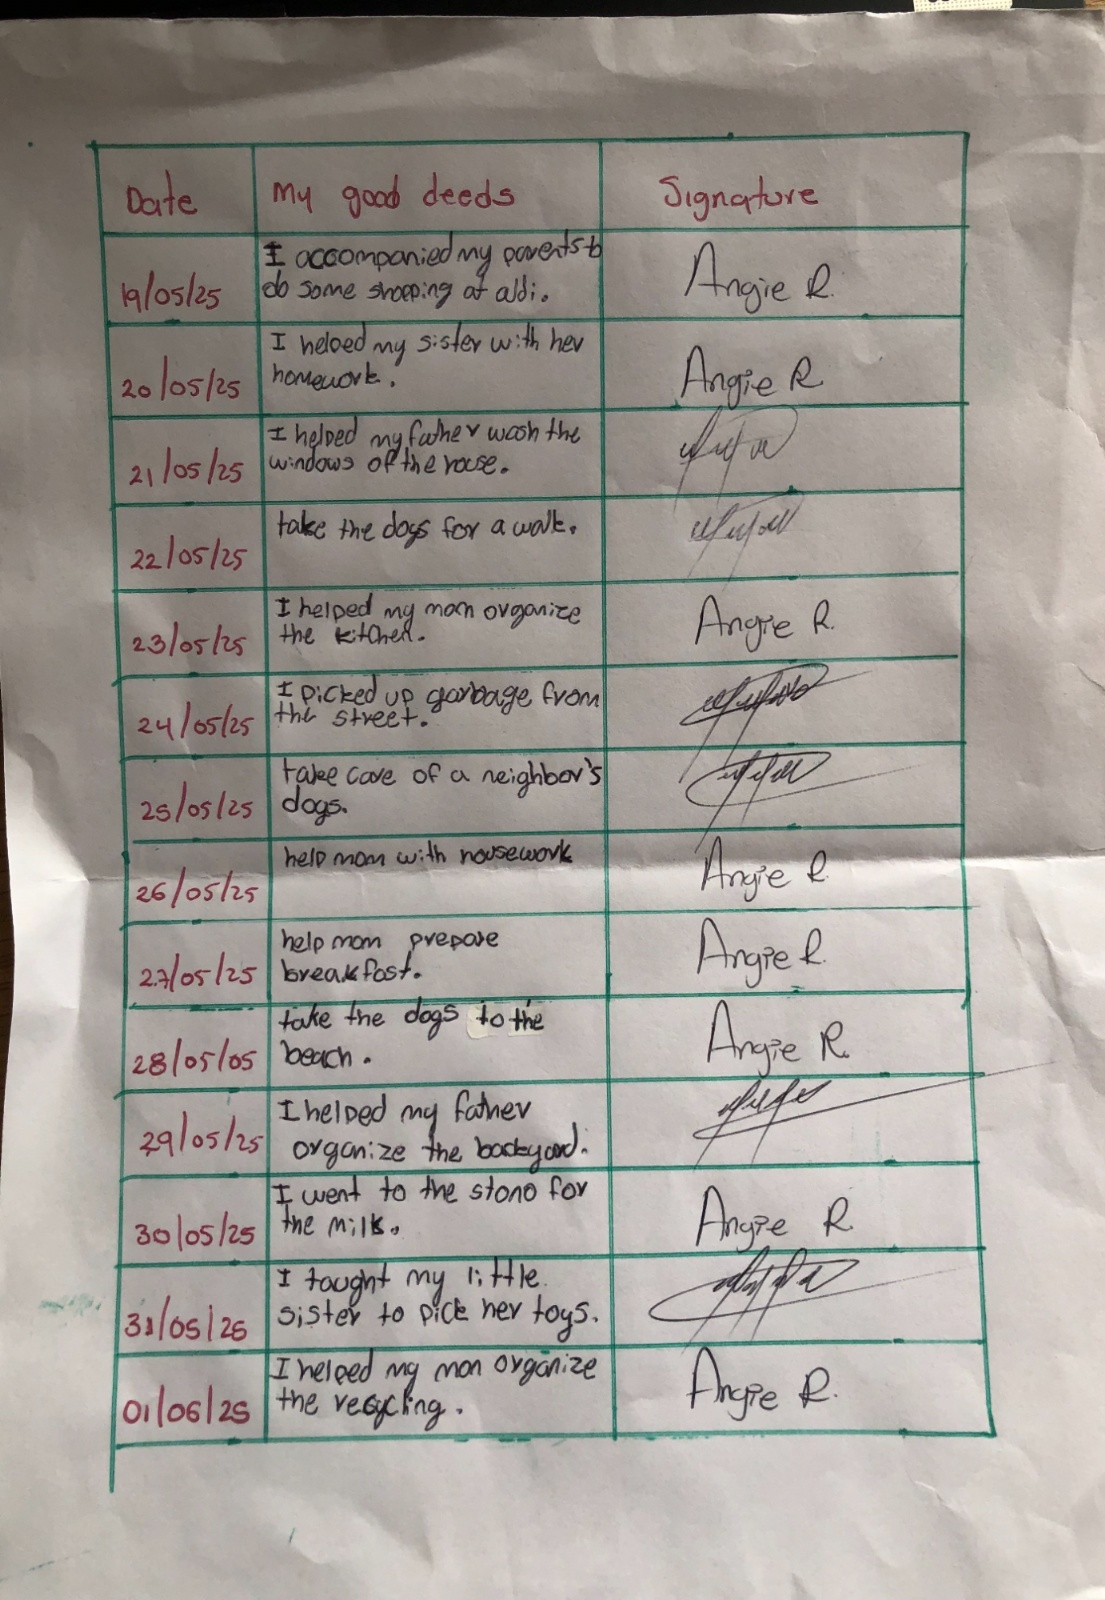 Date My good deeds Signature
I accompanied my parents to
19/05/25 do some shopping at aldi. Angie R.
I helped my sister with her
20/05/25 homework. Angie R
I helped my father wash the
21/05/25 windows of the house.
take the dogs for a walk.
22/05/25
I helped my mom organize
23/05/25 the kitchen. Angie R.
I picked up garbage from
24/05/25 the street.
take care of a neighbor's
25/05/25 dogs.
help mom with housework
26/05/25 Angie R
help mom prepare
27/05/25 breakfast. Angie R.
take the dogs to the
28/05/05 beach. Angie R.
I helped my father
29/05/25 organize the backyard.
I went to the stono for
30/05/25 the milk. Angie R.
I tought my little
31/05/25 sister to pick her toys.
I helped my mon organize
01/06/25 the recycling. Angie R.